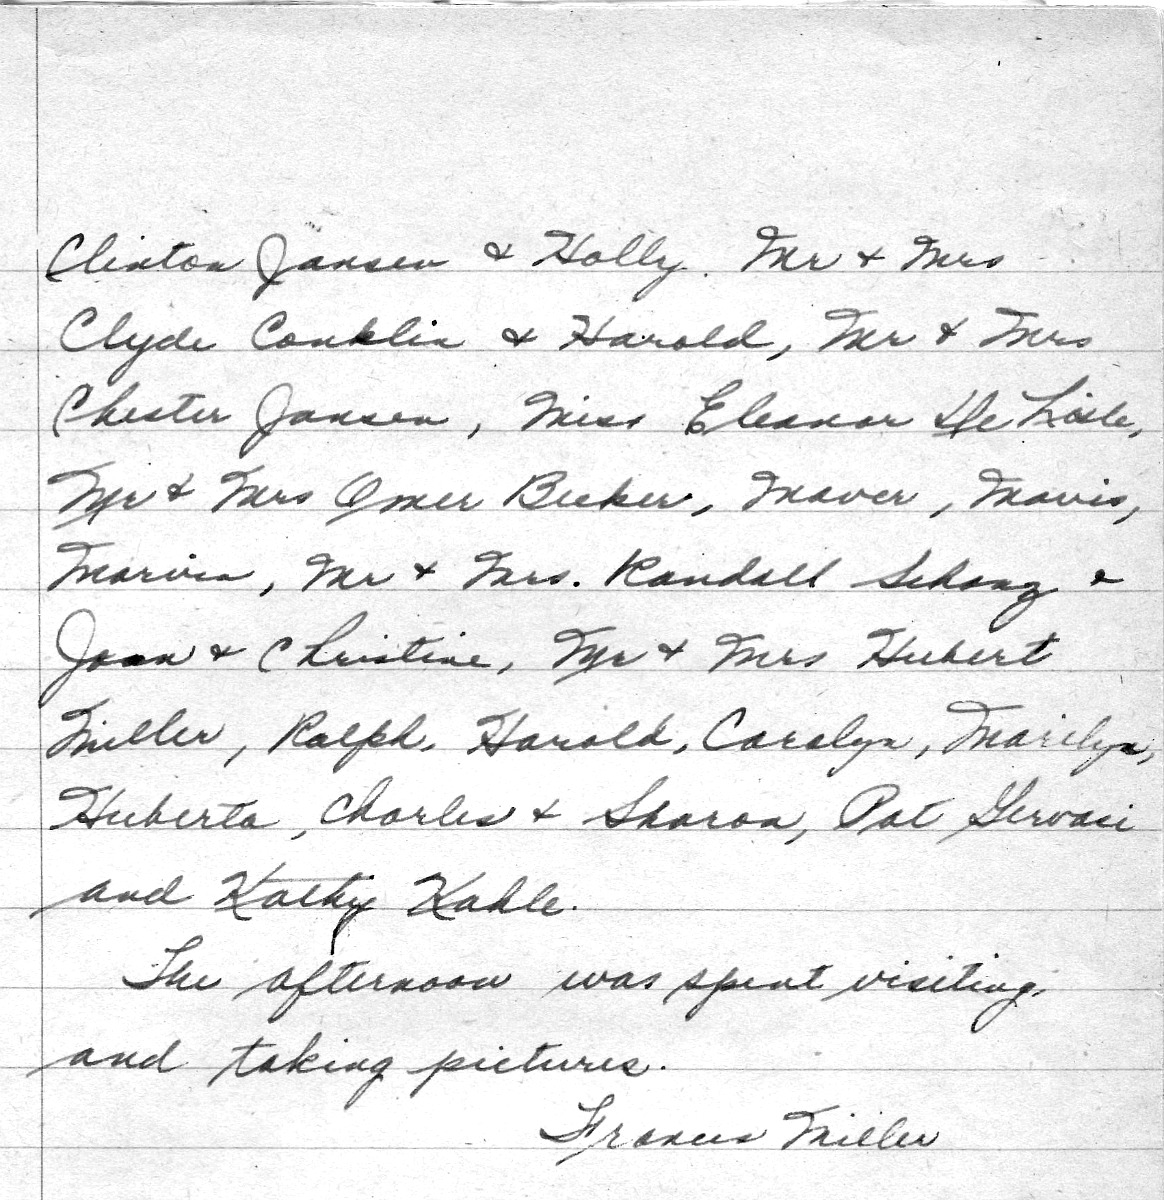 Clinton Jansen & Holly. Mr & Mrs
Clyde Conklin & Harold, Mr & Mrs
Chester Jansen, Miss Eleanor De Lisle,
Mr & Mrs Omer Becker, Maver, Mavis,
Marvin, Mr & Mrs. Randall Schanz &
Joan & Christine, Mr & Mrs Hubert
Miller, Ralph, Harold, Carolyn, Marilyn,
Huberta, Charles & Sharon, Pat Gervasi
and Kathy Kahle.
The afternoon was spent visiting,
and taking pictures.
Frances Miller